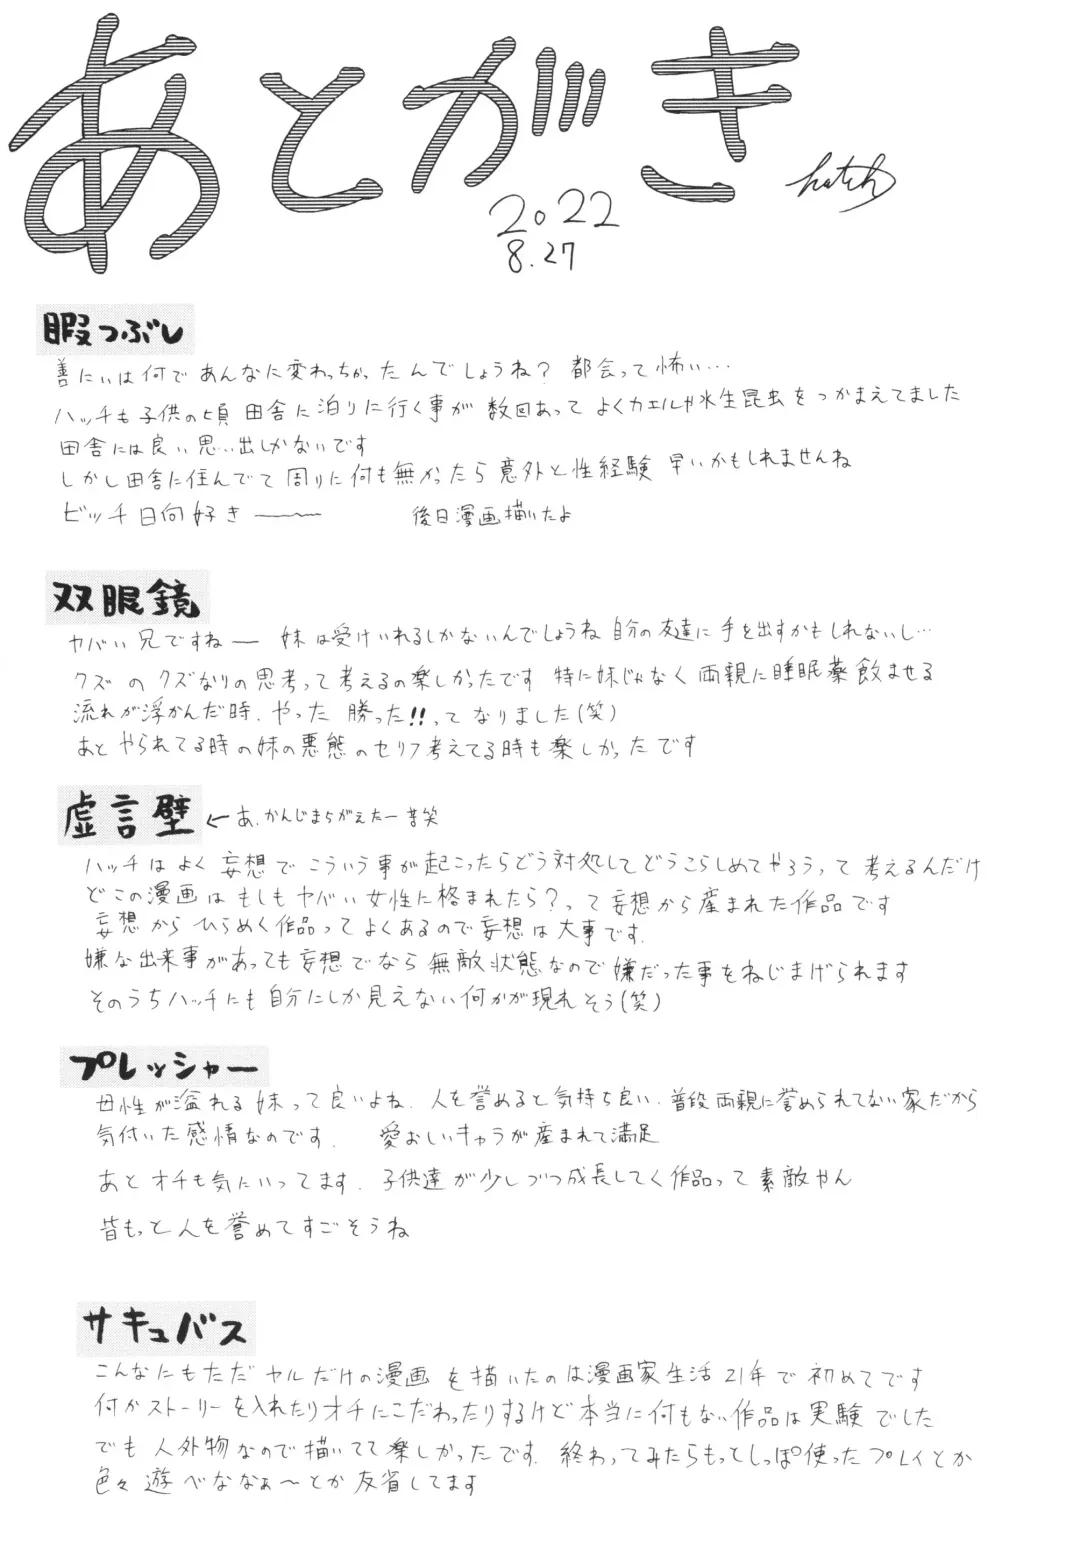 あとがき
hatch
2022
8.27
暇つぶし
善にいは何であんなに変わっちゃったんでしょうね？ 都会って怖い…
ハッチも子供の頃 田舎に泊りに行く事が 数回あって よくカエルや水生昆虫をつかまえてました
田舎には良い思い出しかないです
しかし田舎に住んでて 周りに何も無かったら 意外と性経験 早いかもしれませんね
ビッチ日向好き――〜 後日漫画描いたよ
双眼鏡
ヤバい兄ですね― 妹は受けいれるしかないんでしょうね 自分の友達に 手を出すかもしれないし…
クズの クズなりの思考って考えるの楽しかったです 特に妹じゃなく 両親に睡眠薬飲ませる
流れが浮かんだ時、やった 勝った!!ってなりました(笑)
あと やられてる時の妹の悪態のセリフ考えてる時も楽しかったです
虚言壁 ← あ、かんじまちがえたー苦笑
ハッチは よく 妄想で こういう事が起こったらどう対処して どうこらしめてやろうって 考えるんだけ
どこの漫画は もしも ヤバい女性に格まれたら？って妄想から産まれた作品です
妄想から ひらめく作品って よくあるので妄想は 大事です.
嫌な出来事があっても妄想でなら 無敵状態なので嫌だった事をねじまげられます
そのうちハッチにも自分にしか見えない何かが現れそう(笑)
プレッシャー
母性が溢れる妹って良いよね、人を誉めると気持ち良い、普段両親に誉められてない家だから
気付いた感情なのです. 愛おしいキャラが産まれて満足
あと オチも気にいってます. 子供達が少しづつ成長してく作品って 素敵やん
皆もっと人を誉めてすごそうね
サキュバス
こんなにもただ ヤルだけの漫画を描いたのは漫画家生活 21年で 初めてです
何かストーリーを入れたりオチにこだわったりするけど本当に何もない作品は実験でした
でも 人外物なので描いてて楽しかったです. 終わってみたらもっとしっぽ使ったプレイとか
色々 遊べななぁ〜とか 反省してます